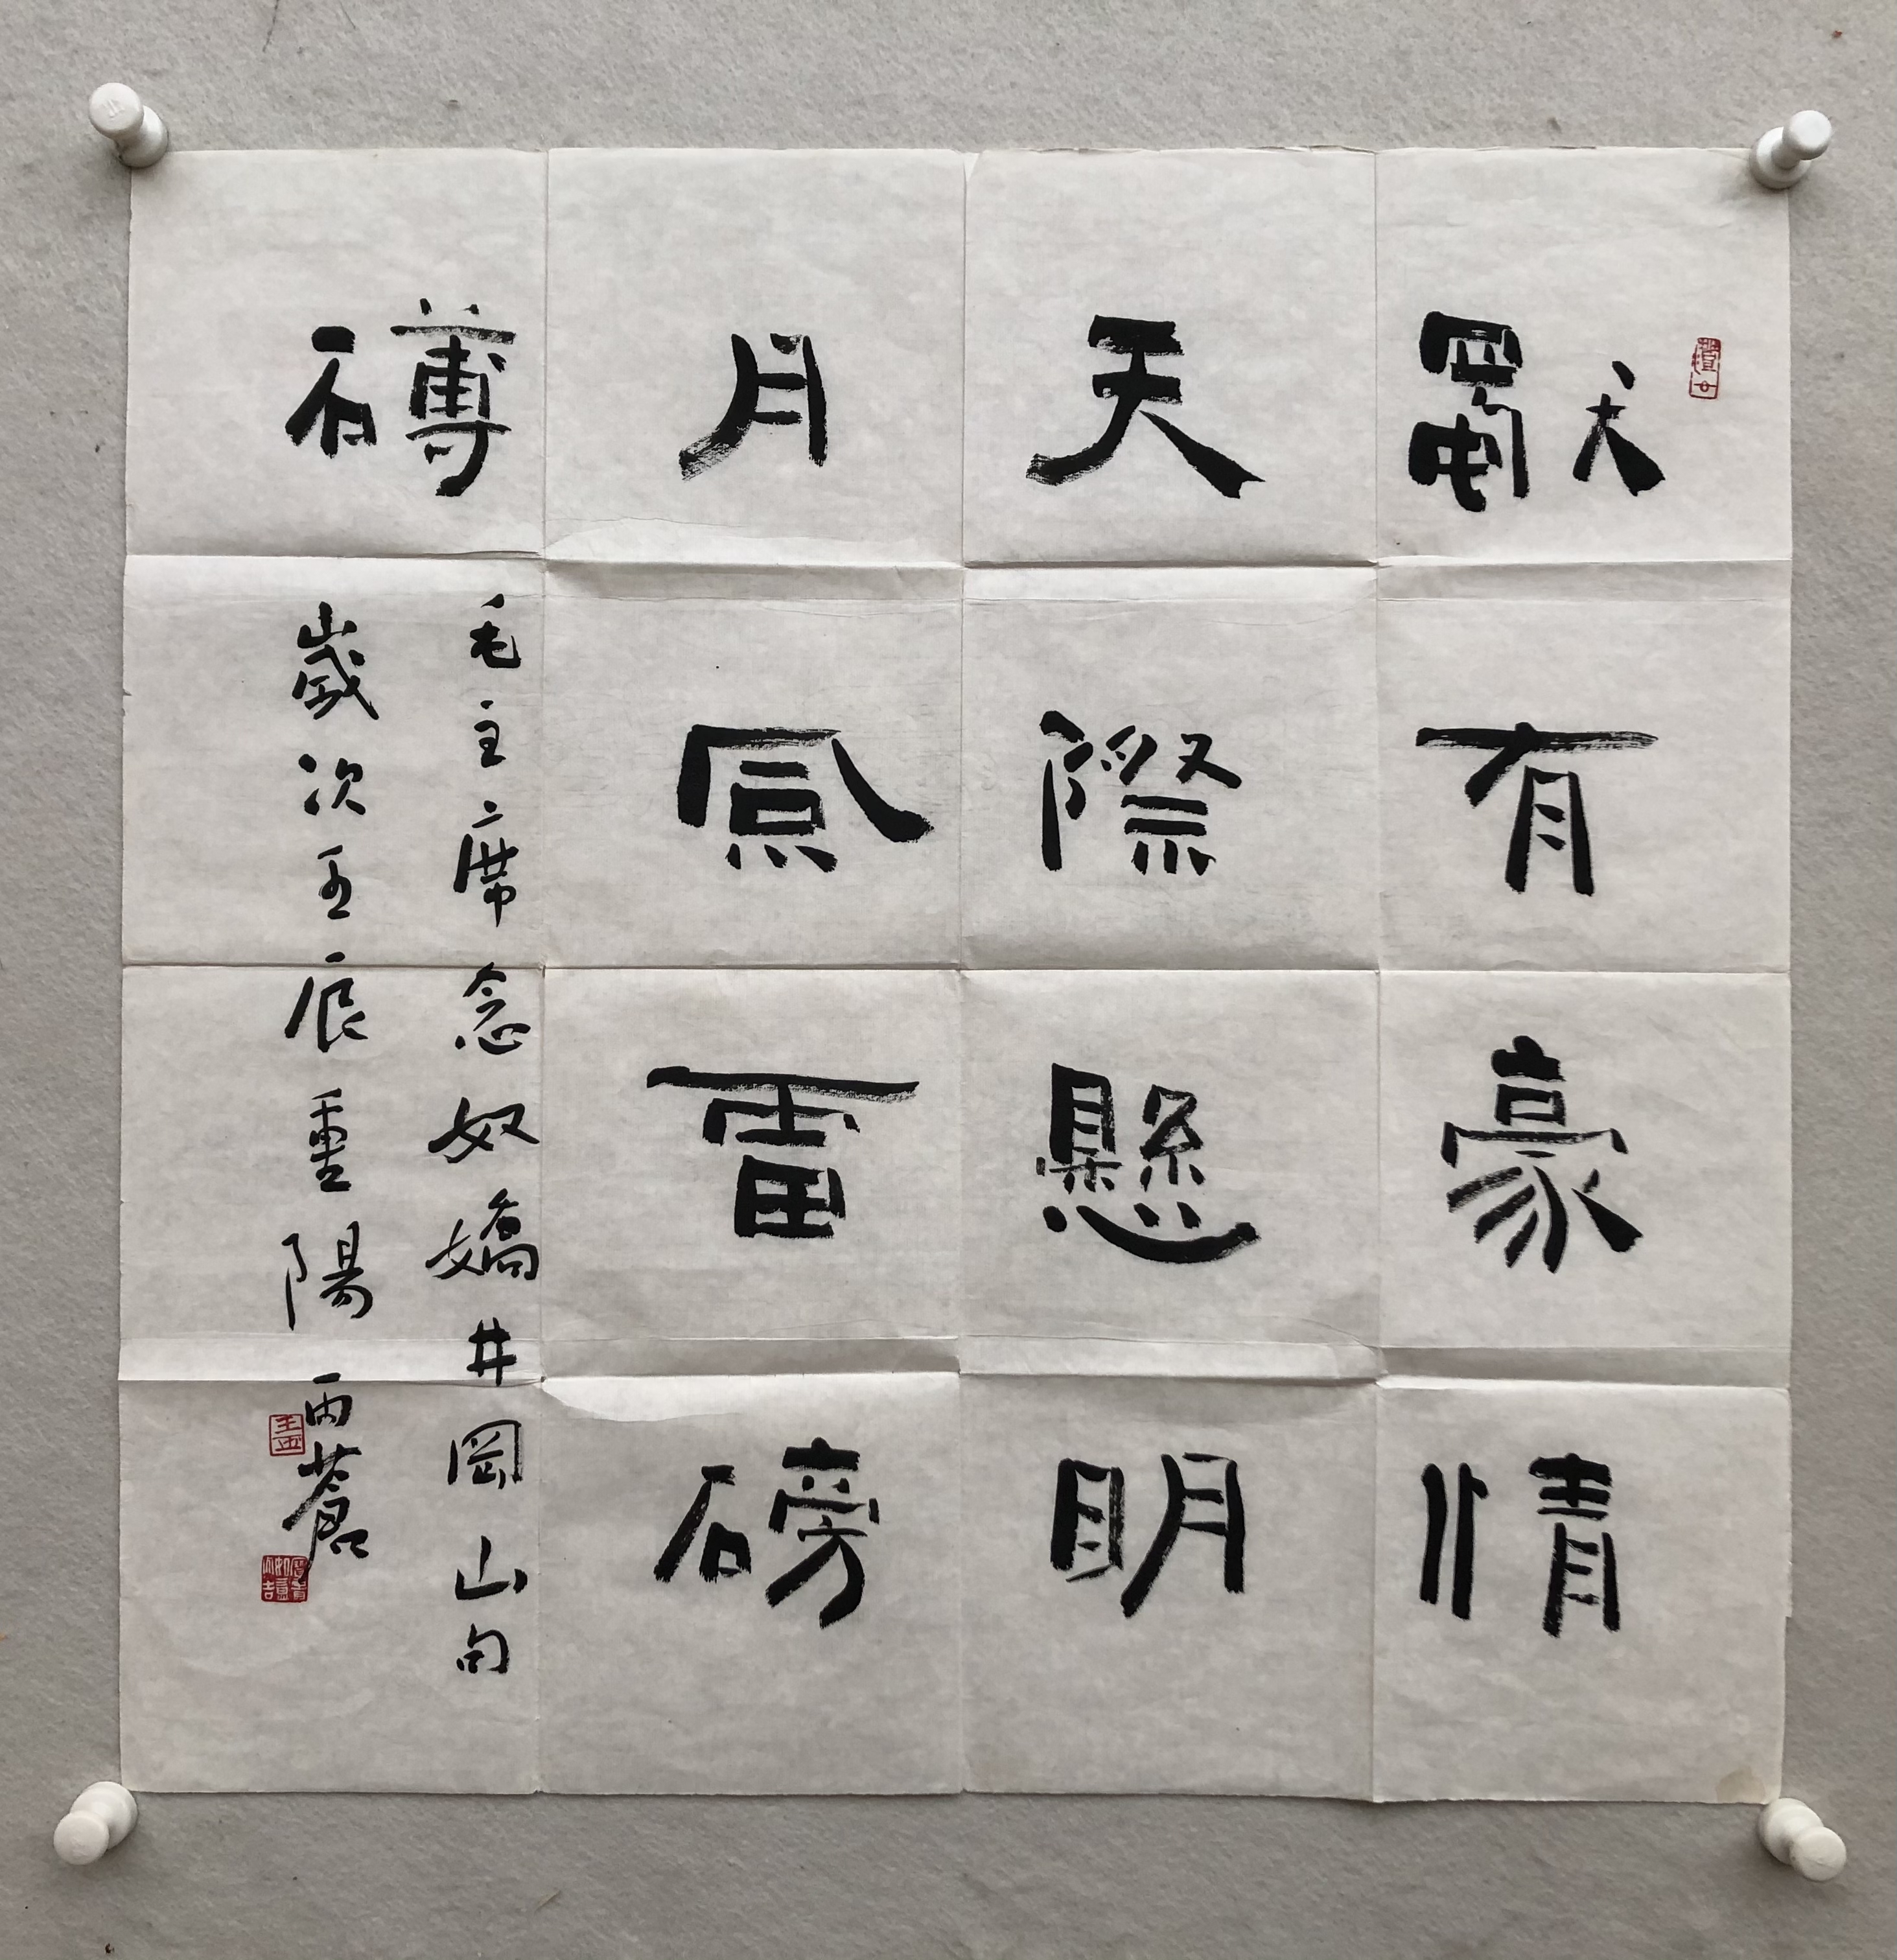 獨有豪情
天際懸明
月風雷磅
礴
毛主席念奴嬌井岡山句
歲次壬辰重陽 蒼